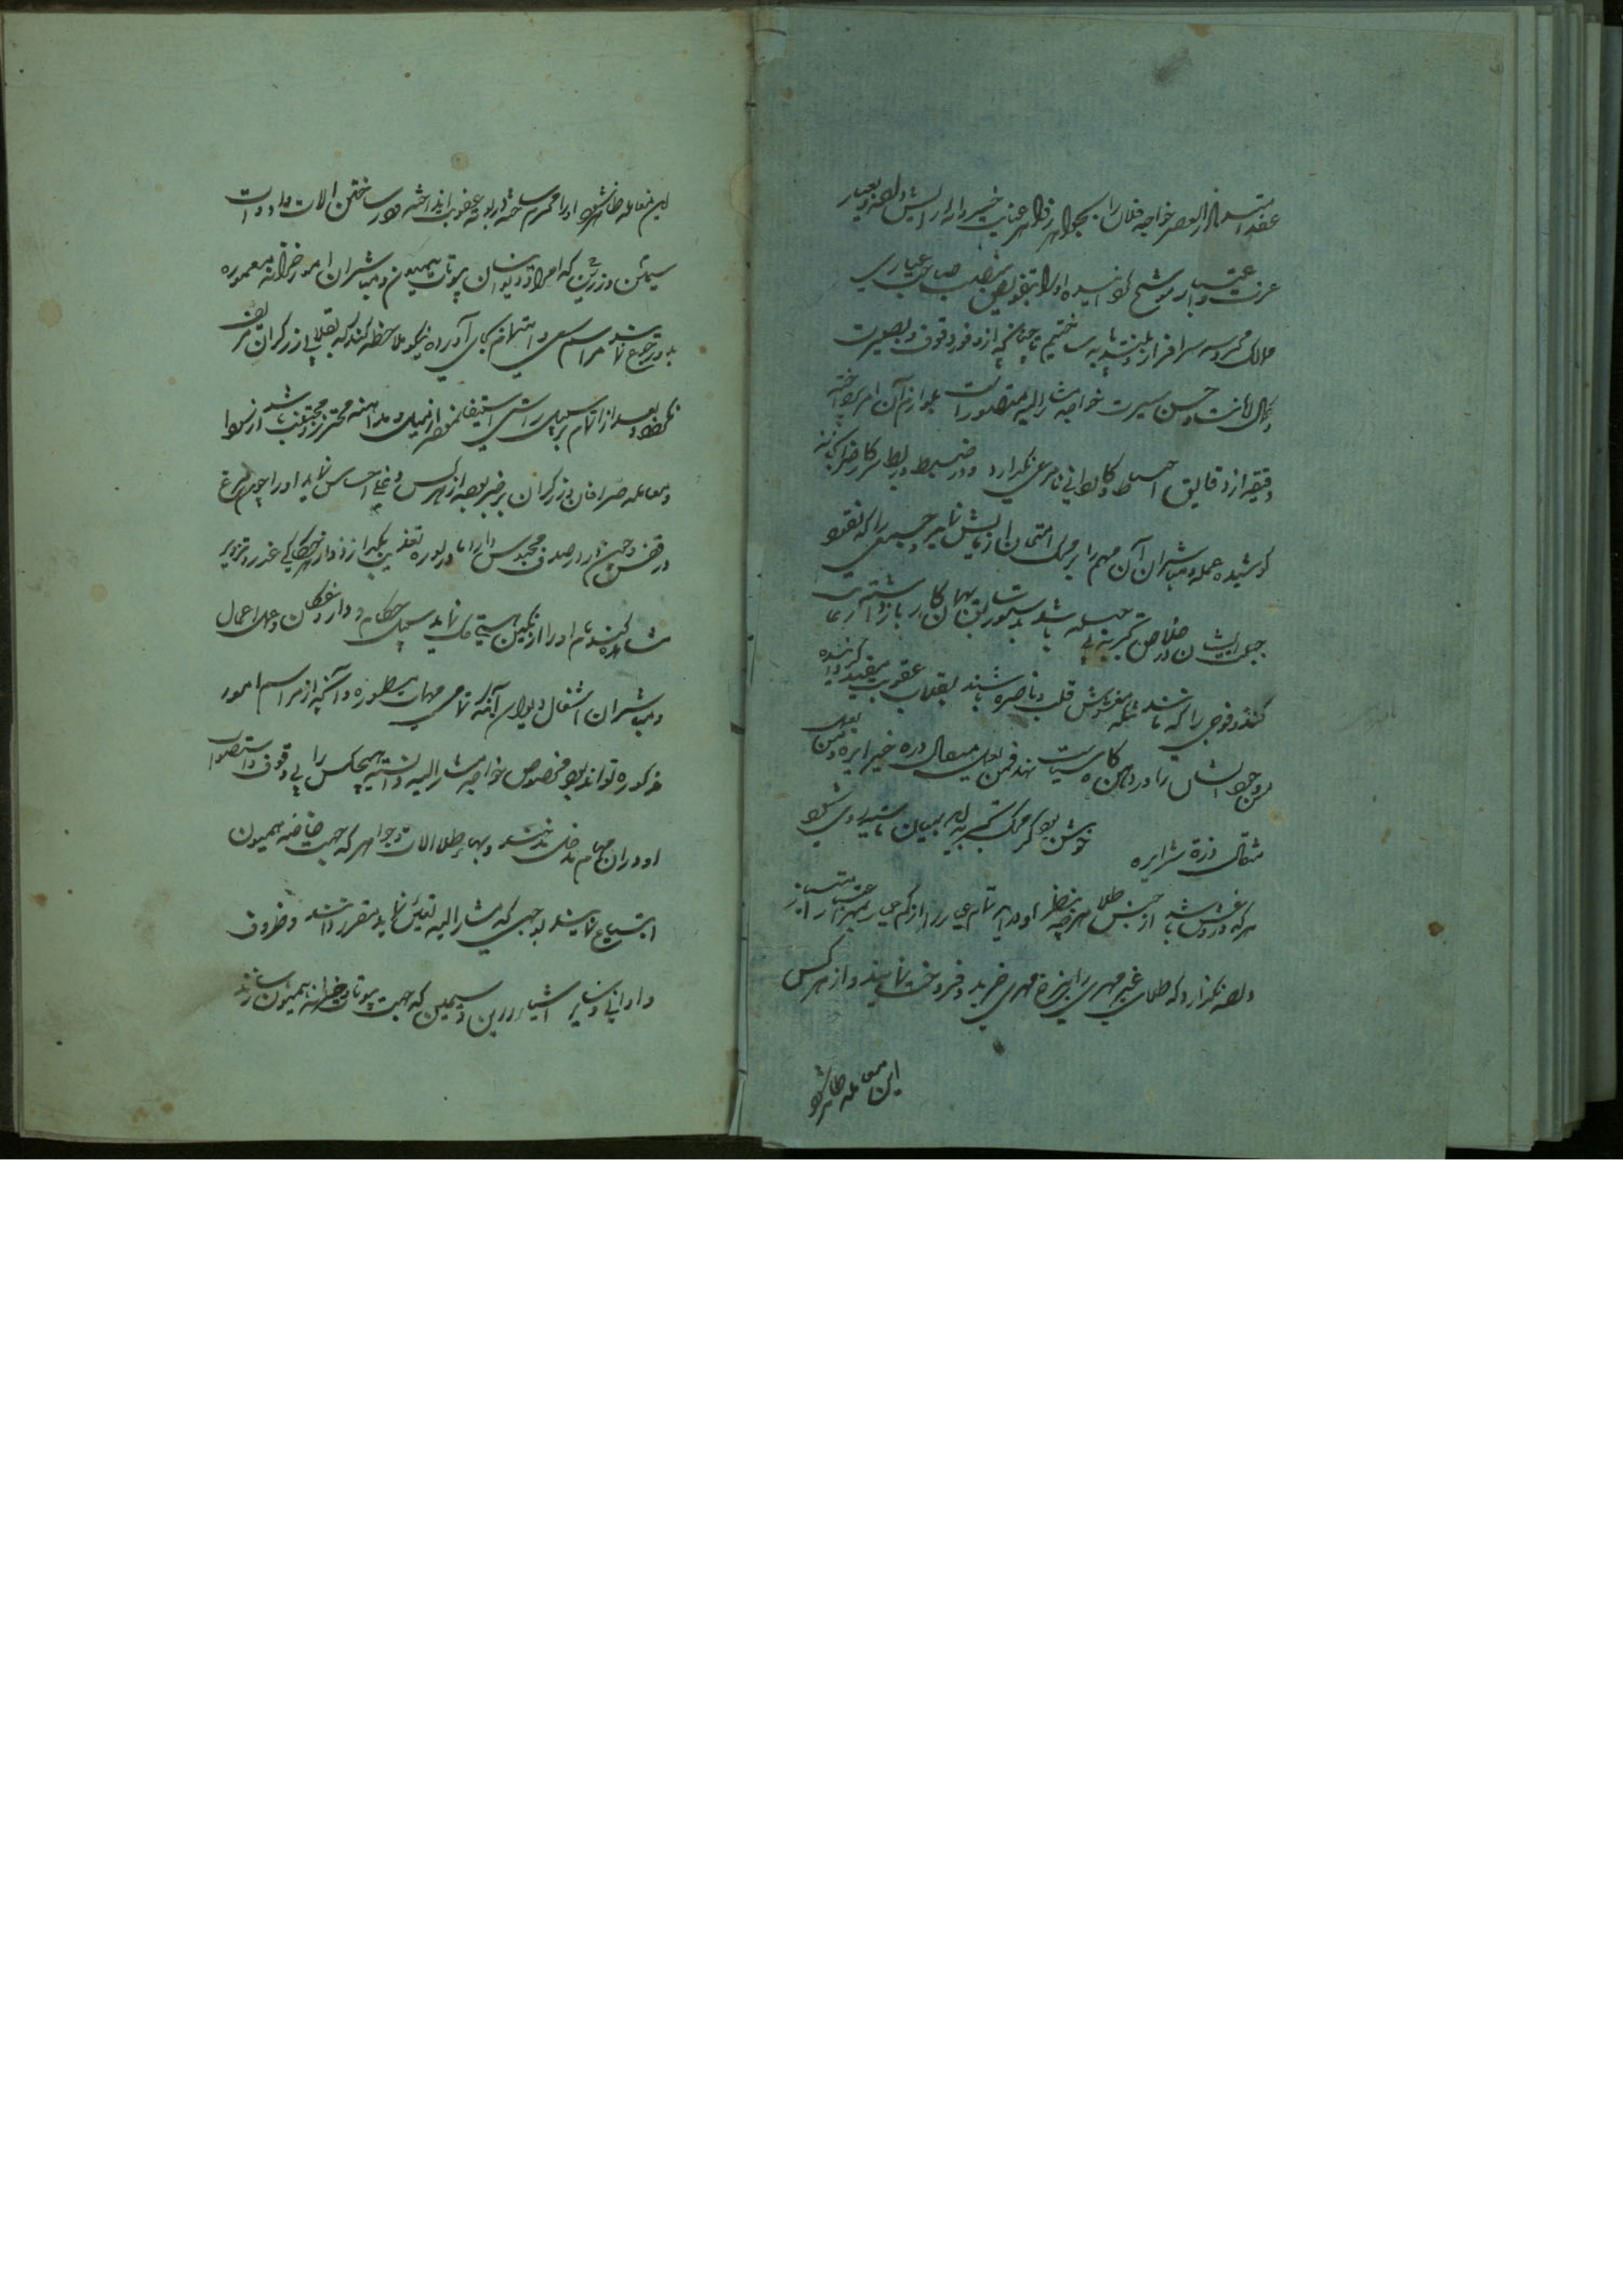 عقد استمال العصر خواجه فلان را بجواهر زواهر عنایت خسروانه آرایش داده و بعیار
عزت و اعتبار موشح گردانیده او را بتفویض منصب صاحب عیاری
ممالک محروسه سرافراز و بلند پایه ساختیم تا چنانچه از وفور وقوف و بصیرت
و کمال امانت و حسن سیرت خواجه مشار الیه متصور است بلوازم آن امر پرداخته
دقیقه از دقایق احتیاط و کاردانی نامرعی نگذارد و در ضبط و ربط سرکار ضرابخانه
کوشیده عمله و مباشران آن مهم را بر محک امتحان آزمایش نماید و جمعی را که نقود
جبلت ایشان در خلاص تجربه بی باشد بدستور سابق بهمان کار باز داشته رعایت
کند و فوجی را که مغشوش قلب و ناصره باشند بعقاب عقوبت مقید گردانیده
من وجود ایشان را در دهن گاز سیاست نهد فمن یعمل مثقال ذرة خیرا یره و من یعمل
مثقال ذرة شرا یره خوش بود گر محک تجربه آید بمیان تا سیه روی شود
هر که در او غش باشد از جنس طلا هر چه بنظر او درآید تمام عیار را از کم عیار اعتبار
داده نگذارد که طلای غیر مهری را بی مهری خرید و فروخت نمایند و از هر کس
این معامله ظاهر شود
این معامله ظاهر شود او را مجرم ساخته در بوته عقوبت اندازد و در ساختن آلات و ادوات
سیمین و زرین که امرا و دیوان بیوتات همیون و مباشران امور خزانه معموره
بدو رجوع نمایند مراسم سعی و اهتمام بجای آورده نیکو ملاحظه کند که تقلبی از زرگران
نگردد و بعد از اتمام بر سبیل راستی از میل و مداهنه محترز و مجتنب باشد
و معامله صرافان و زرگران بر خبر بوده از هر کس دغلی احساس نماید او را چون مرغ
در قفس و چون در در صدف محبوس دارد
مشاهده کند نام او را از نگین هستی حک نماید سبیل حکام و داروغگان و عمال اعمال
و مباشران اشغال دیوانی آنکه تمامی مهمات مسطوره و آنچه از مراسم امور
مذکوره تواند بود مخصوص خواجه مشار الیه دانسته هیچکس را بی وقوف و استصواب
او در ان مهام مدخل ندهند و بهاء طلا آلات و جواهر که جهت خاصه همیون
ابتیاع نمایند بوجهی که مشار الیه تعیین نماید مقرر دانند و ظروف
و اوانی و سایر اشیاء زرین و سیمین که جهت بیوتات و خزانه همیون سازند